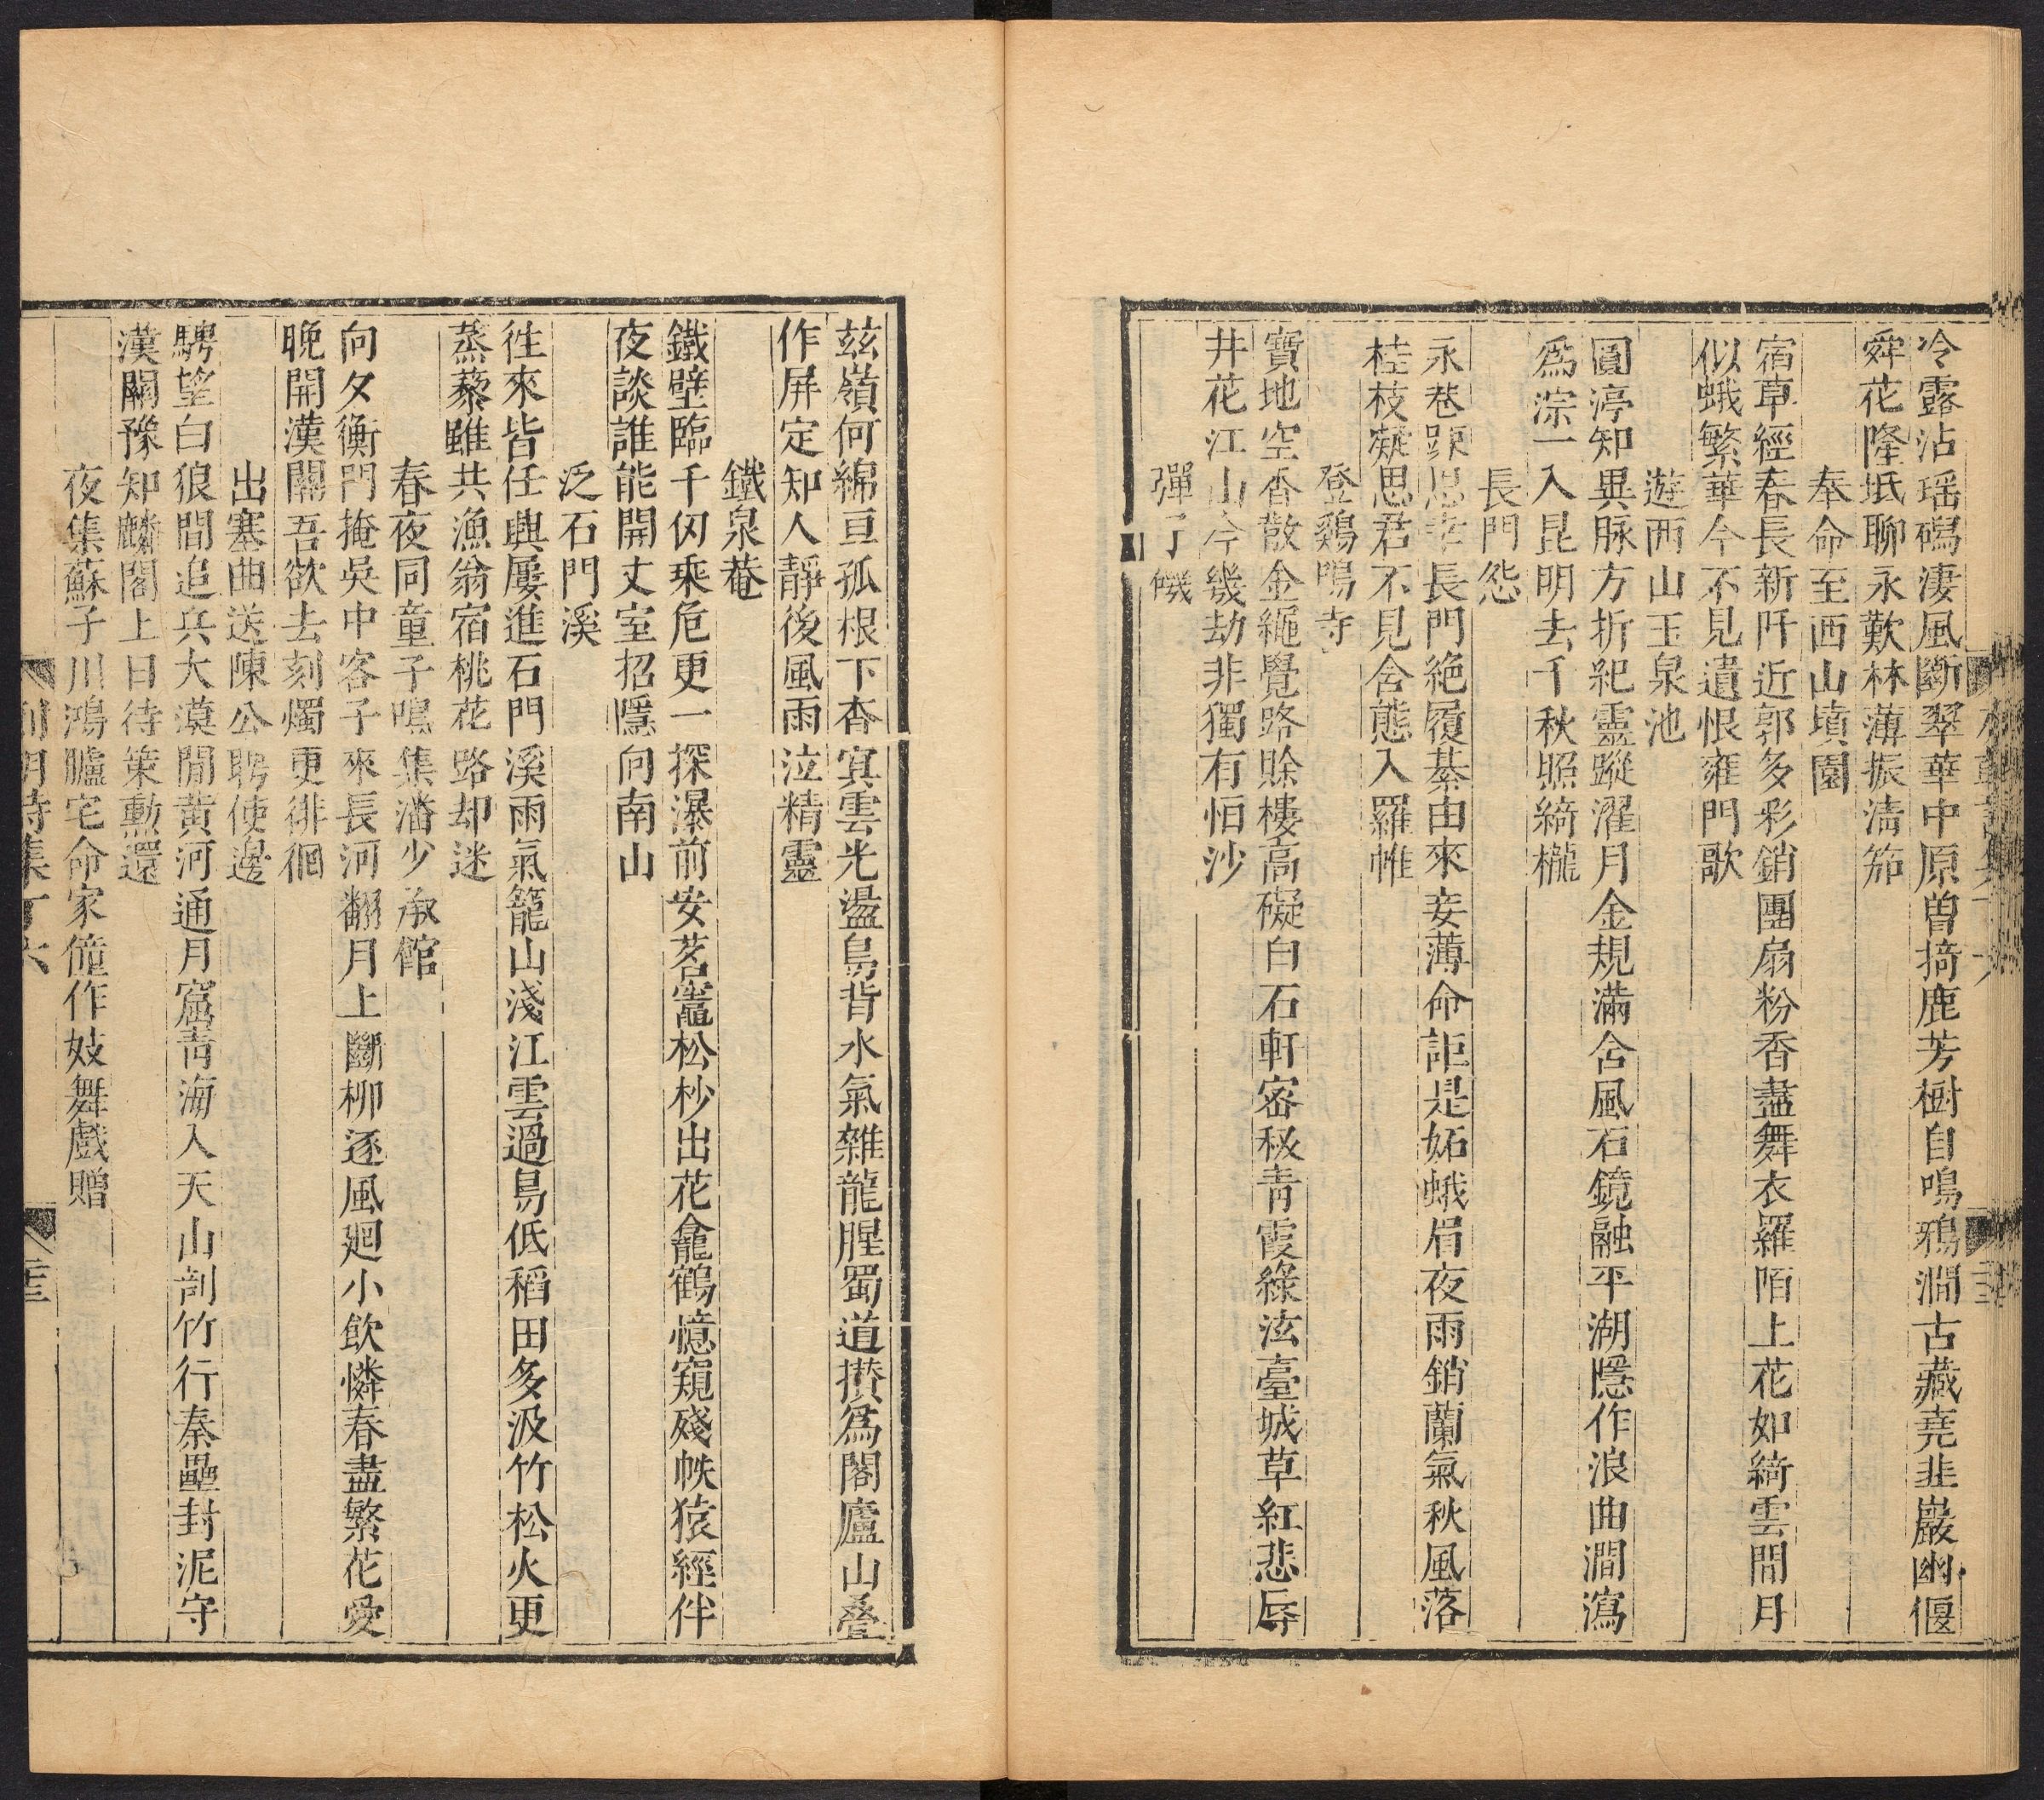 冷露沾瑶碣淒風斷翠華中原曽掎鹿芳樹自鳴鴉澗古藏堯韭巖幽偃
舜花隆坻聊永歎林薄振淸笳
奉命至西山墳園
宿草經春長新阡近郭多彩銷團扇粉香盡舞衣羅陌上花如綺雲間月
似蛾繁華今不見遺恨雍門歌
遊西山玉泉池
圓渟知異脉方折紀靈蹤濯月金規滿含風石鏡融平湖隱作浪曲澗瀉
爲淙一入昆明去千秋照綺櫳
長門怨
永巷踈恩幸長門絶履綦由來妾薄命詎是妬蛾眉夜雨銷蘭氣秋風落
桂枝凝思君不見含態入羅帷
登鷄鳴寺
寶地空香散金繩覺路賒樓高礙白石軒密秘靑霞綠泫臺城草紅悲辱
井花江山今幾劫非獨有恒沙
彈了磯
兹嶺何綿亘孤根下杳㝠雲光盪島背水氣雜龍腥蜀道攅爲閣廬山叠
作屏定知人靜後風雨泣精靈
鐵泉菴
鐵壁臨千仞乘危更一探瀑前安茗竈松杪出花龕鶴憶窺殘帙猿經伴
夜談誰能開丈室招隱向南山
泛石門溪
徃來皆任興屢進石門溪雨氣籠山淺江雲過島低稻田多汲竹松火更
蒸藜雖共漁翁宿桃花路却迷
春夜同童子鳴集潘少承館
向夕衡門掩吳中客子來長河翻月上斷柳逐風廻小飲憐春盡繁花愛
晚開漢關吾欲去刻燭更徘徊
出塞曲送陳公聘使邊
騁望白狼間追兵大漠閒黃河通月窟靑海入天山剖竹行秦壘封泥守
漢關豫知麟閣上日待策勳還
夜集蘇子川鴻臚宅命家僮作妓舞戲贈